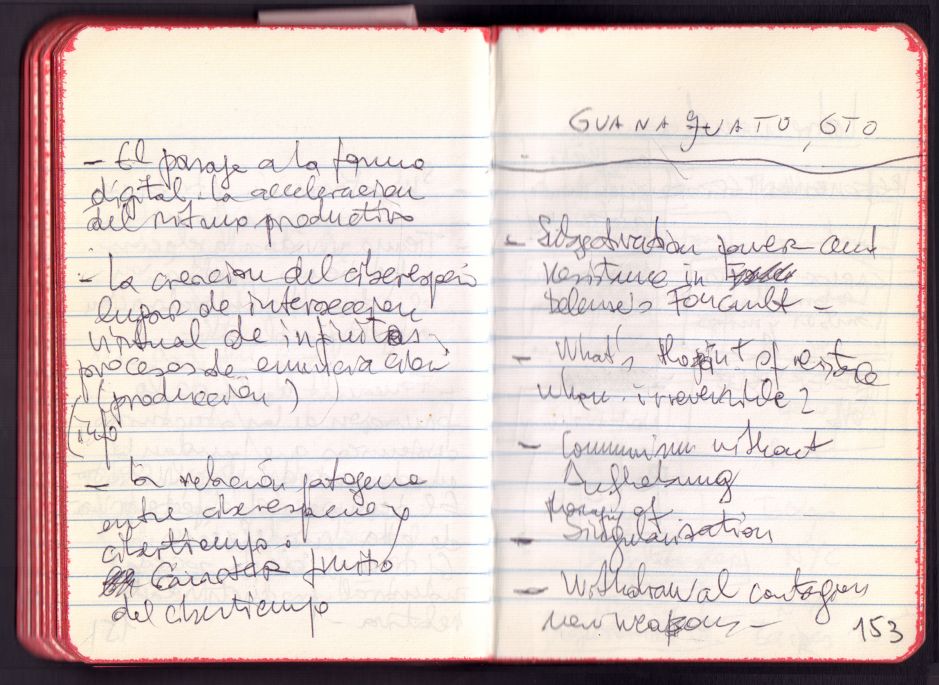 - El pasaje a la forma
digital. La acceleracion
del ritmo productivo
- La creacion del ciberespacio
lugar de intersecion
virtual de infinitos
procesos de enunciacion
(produccion)
(info
- La relación patogena
entre ciberespacio y
cibertiempo.
Caracter finito
del cibertiempo
GUANAJUATO, GTO
- Subjectivation power and
resistence in
Deleuze's Foucault -
- What's the point of resistance
when irreversible?
- Communism without
Aufhebung
therapy of
- Singularisation
- Withdrawal contagion
new weapons -
153